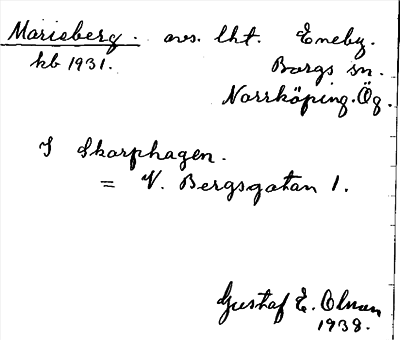 Marieberg. avs. lht. Eneby.
kb 1931. Borgs sn.
Norrköping. Ög.
I Skarphagen.
= V. Bergsgatan 1.
Gustaf E. Olson
1938.